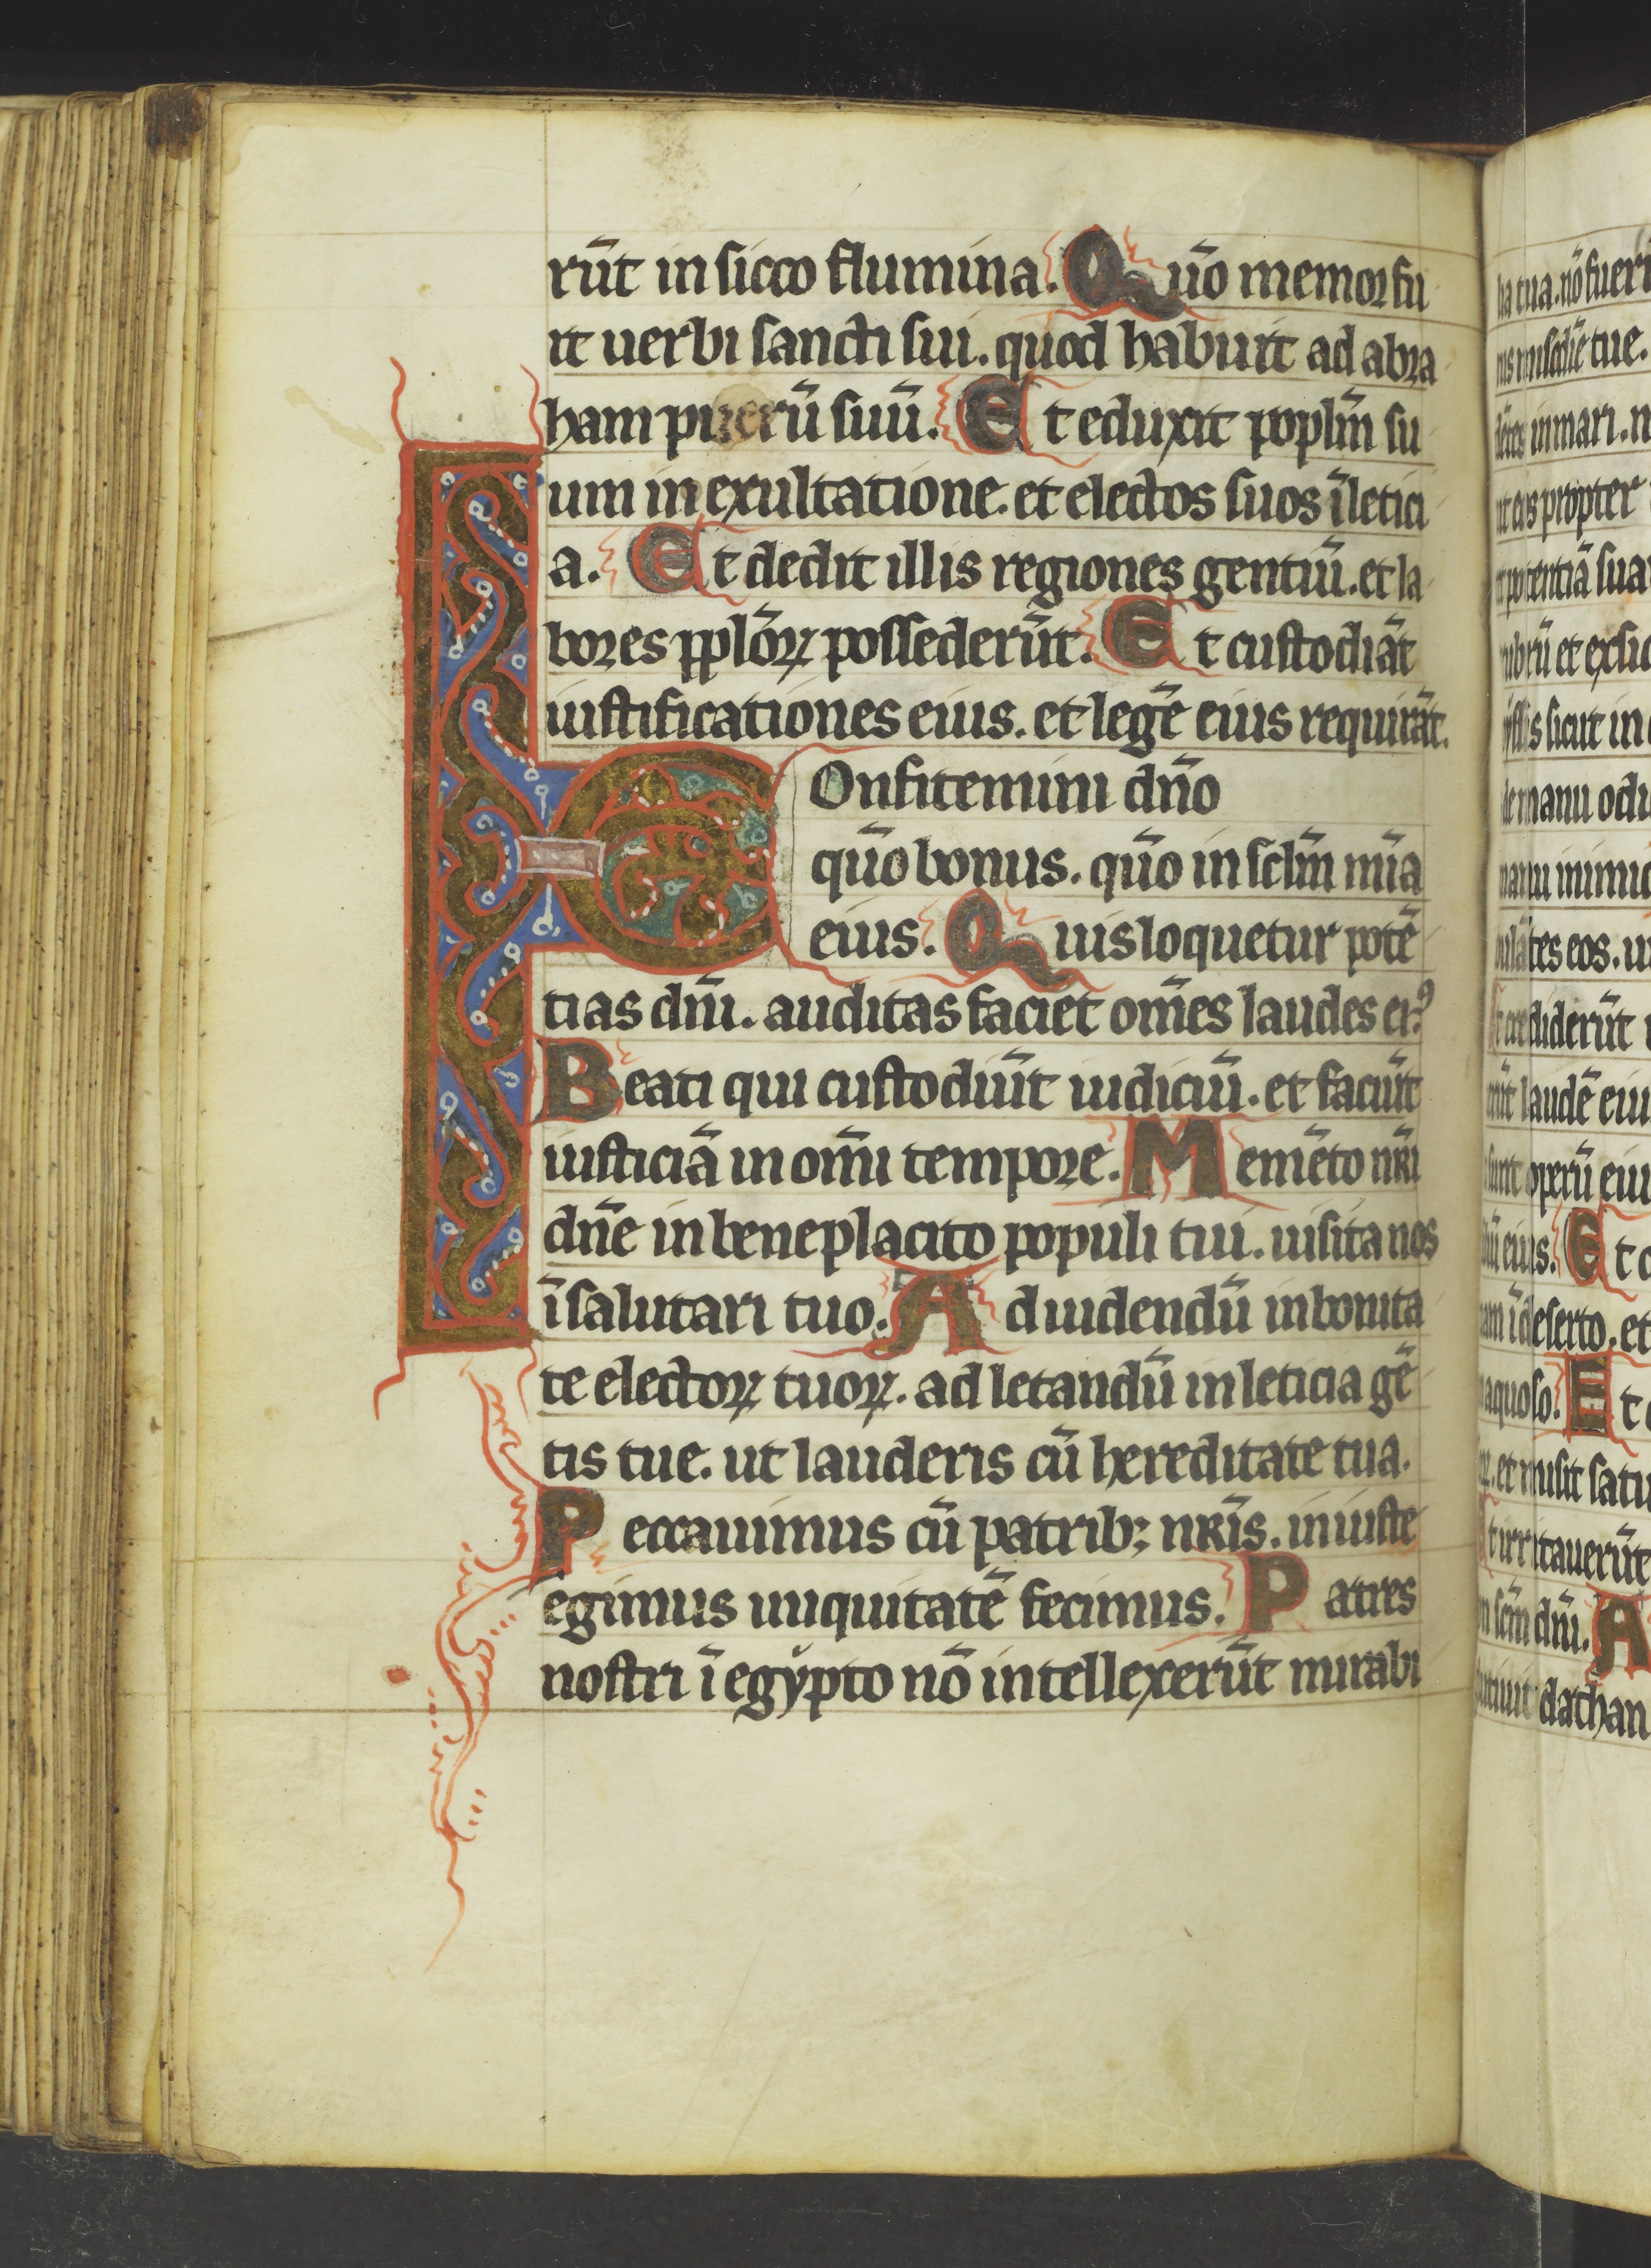 rūt in sicco flumina. Quō memor fu
it uerbi sancti sui. quod habuit ad abra
ham puerū suū. Et eduxit poplm̄ su
um in exultatione. et electos suos ī letici
a. Et dedit illis regiones gentiū. et la
bores pplōꝝ possederūt. Et custodiāt
iustificationes eius. et legē eius requirāt.
COnfitemini dn̄o
qūo bonus. qūo in sclm̄ mīa
eius. Quis loquetur potē
tias dn̄i. auditas faciet om̄es laudes eiꝰ.
Beati qui custodiūt iudiciū. et faciūt
iusticiā in om̄i tempore. Memēto nr̄i
dn̄e in beneplacito populi tui. uisita nos
ī salutari tuo. Ad uidendū in bonita
te electoꝝ tuoꝝ. ad letandū in leticia gē
tis tue. ut lauderis cū hereditate tua.
Peccauimus cū patrib; nr̄is. iniuste
egimus iniquitatē fecimus. Patres
nostri ī egẏpto nō intellexerūt mirabi
tua. nō fueri
tue.
in mari. n
propter
potentiā sua
et exsic
sicut in
manu odi
inimic
eos.
crediderūt
laudē eiu
operū eiu
eius. Et c
ī deserto. et
aquoso. Et
et misit satu
irritauerūt
scm̄ dn̄i. A
dathan